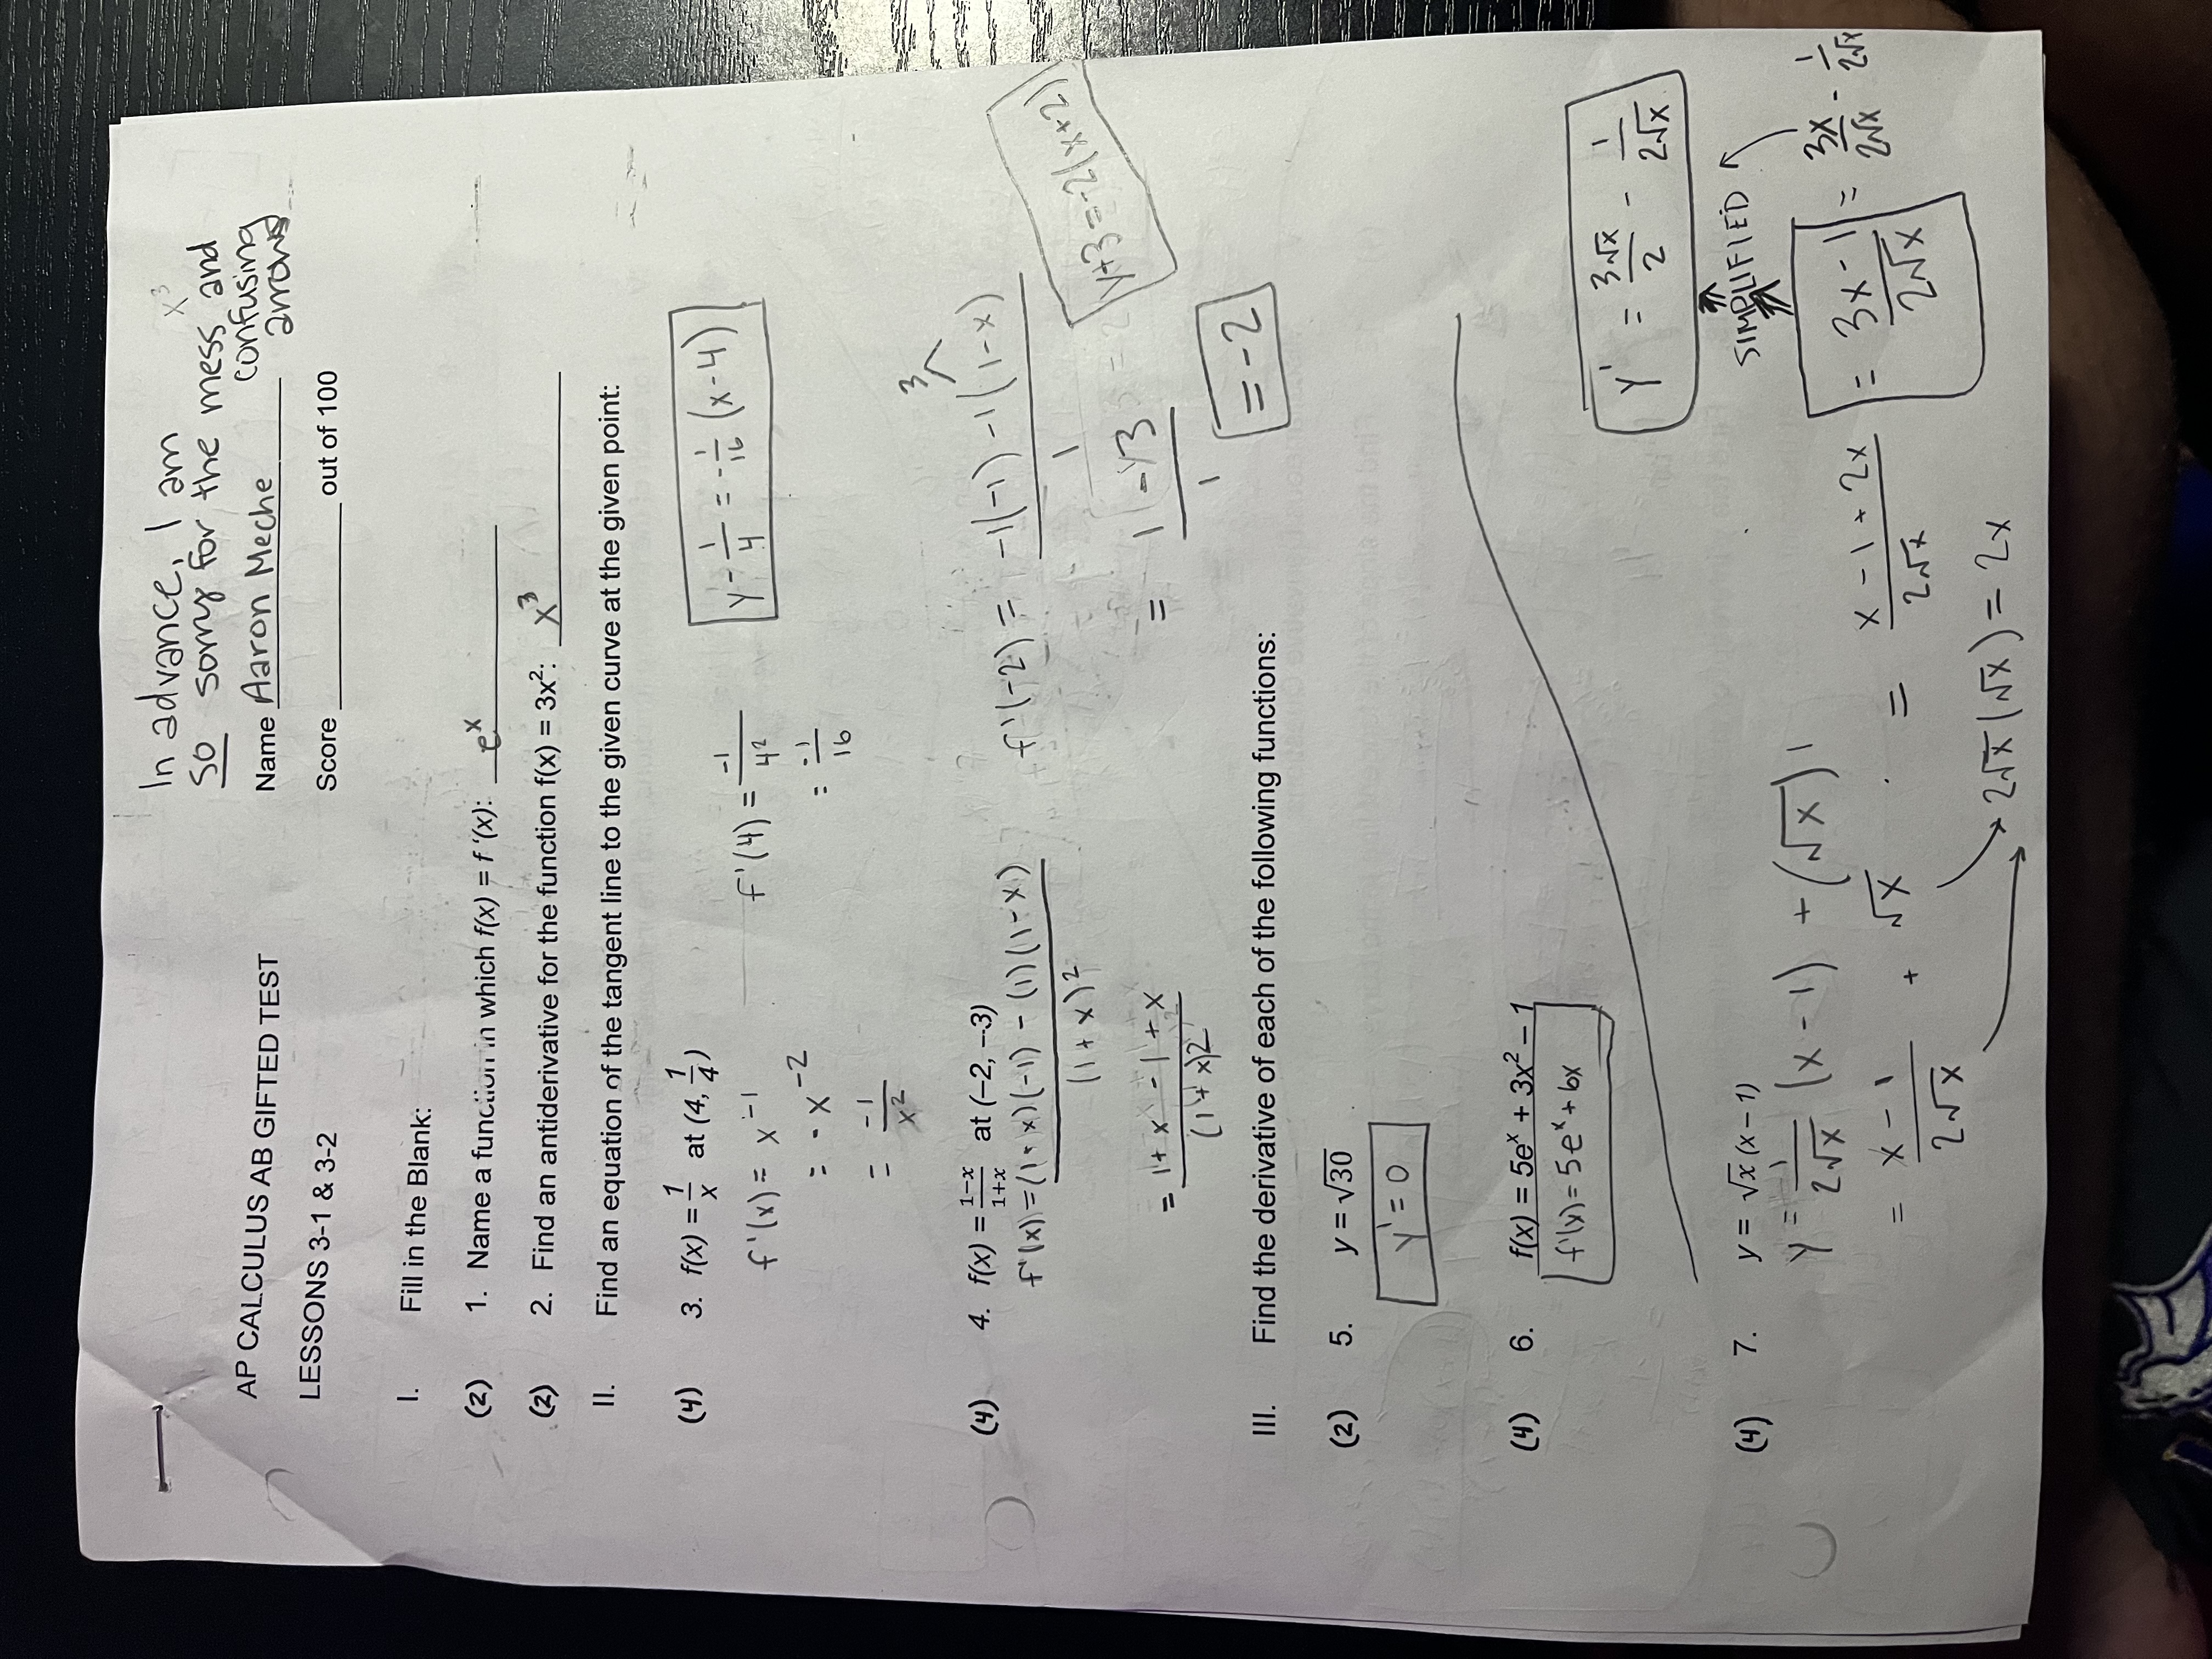 In advance, I am
so sorry for the mess and
confusing
arrows
x³
AP CALCULUS AB GIFTED TEST
Name Aaron Meche
LESSONS 3-1 & 3-2
Score ____________ out of 100
I. Fill in the Blank:
(2) 1. Name a function in which f(x) = f '(x): eˣ
(2) 2. Find an antiderivative for the function f(x) = 3x²: x³
II. Find an equation of the tangent line to the given curve at the given point:
(4) 3. f(x) = 1/x at (4, 1/4)
f'(x) = x⁻¹
= -x⁻²
= -1/x²
f'(4) = -1/4²
= -1/16
y - 1/4 = -1/16 (x-4)
(4) 4. f(x) = 1–x/1+x at (–2, –3)
f'(x) = (1+x)(-1) - (1)(1-x)/(1+x)²
= 1+x - 1+x/(1+x)2
3
f'(-2) = -1(-1) -1(1-x)/1
= 1 - 3/1
= -2
y+3 = -2(x+2)
III. Find the derivative of each of the following functions:
(2) 5. y = √30
y' = 0
(4) 6. f(x) = 5eˣ + 3x² – 1
f'(x) = 5eˣ + 6x
(4) 7. y = √x (x – 1)
y = 1/2√x (x - 1) + (√x) 1
= x - 1/2√x + √x = x - 1 + 2x/2√x = 3x - 1/2√x = 3x/2√x - 1/2√x
2√x (√x) = 2x
SIMPLIFIED
y' = 3√x/2 - 1/2√x